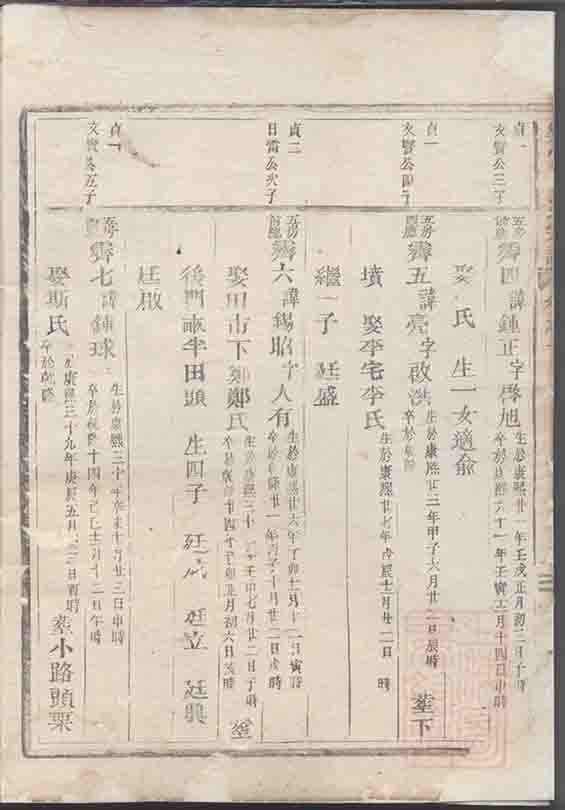 貞一
文賢公三子
五房
霽四 諱鍾正 字啓旭
生於康熙廿一年壬戌正月初三日子時
卒於康熙六十一年壬寅十二月十四日申時
娶 氏 生一女適兪
貞一
文賢公四子
五房
霽五 諱亮 字啟洪
生於康熙廿三年甲子六月廿二日辰時
卒於
塟下
墳 娶李宅李氏
生於康熙廿七年戊辰十二月廿二日 時
繼一子 廷盛
貞二
日雷公次子
五房
霽六 諱錫昭 字人有
生於康熙廿六年丁卯十二月十二日寅時
卒於乾隆廿一年丙子十月廿二日戌時
娶田市下鄭鄭氏
生於康熙三十一年壬申七月廿二日子時
卒於乾隆廿四年己卯正月初六日亥時
塟
後門畈半田頭 生四子 廷成 廷立 廷興
廷啟
貞一
文賢公五子
五房
霽七 諱鍾球
生於康熙三十年辛未十月廿三日申時
卒於乾隆十四年己巳十二月十二日午時
娶斯氏
生於康熙三十九年庚辰五月 三日酉時
卒於乾隆
塟小路頭栗